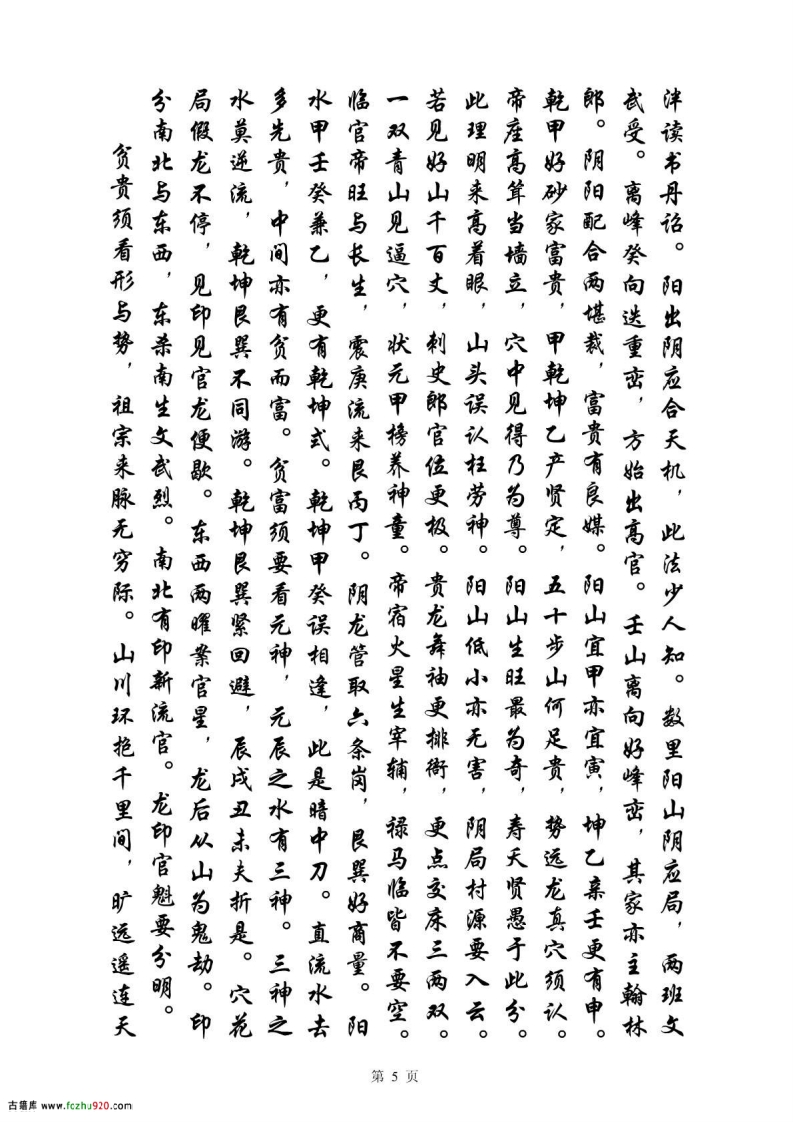 泮读书丹诏。阳出阴应合天机，此法少人知。数里阳山阴应局，两班文
武受。离峰癸向迭重峦，方始出高官。壬山离向好峰峦，其家亦主翰林
郎。阴阳配合两堪裁，富贵有良媒。阳山宜甲亦宜寅，坤乙亲壬更有申。
乾甲好砂家富贵，甲乾坤乙产贤定，五十步山何足贵，势远龙真穴须认。
帝座高耸当墙立，穴中见得乃为尊。阳山生旺最为奇，寿夭贤愚于此分。
此理明来高着眼，山头误认枉劳神。阳山低小亦无害，阴局村源要入云。
若见好山千百丈，刺史郎官位更极。贵龙舞袖更排衙，更点交床三两双。
一双青山见逼穴，状元甲榜养神童。帝宿火星生宰辅，禄马临皆不要空。
临官帝旺与长生，震庚流来艮丙丁。阴龙管取六条岗，艮巽好商量。阳
水甲壬癸兼乙，更有乾坤式。乾坤甲癸误相逢，此是暗中刀。直流水去
多先贵，中间亦有贫而富。贫富须要看元神，元辰之水有三神。三神之
水莫逆流，乾坤艮巽不同游。乾坤艮巽紧回避，辰戌丑未夫折是。穴花
局假龙不停，见印见官龙便歇。东西两曜案官星，龙后从山为鬼劫。印
分南北与东西，东杀南生文武烈。南北有印新流官。龙印官魁要分明。
贫贵须看形与势，祖宗来脉无穷际。山川环抱千里间，旷远遥连天
第 5 页
古籍库 www.fczhu920.com